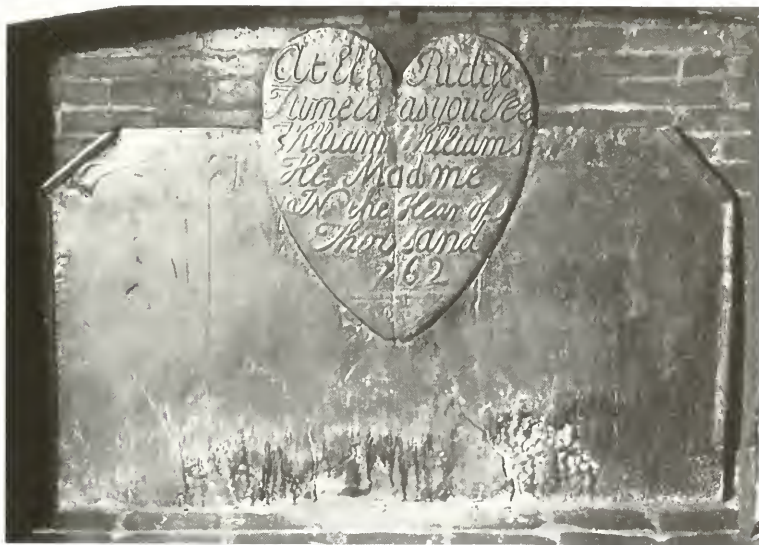 At Elk Ridge
Furneis as you See
William Williams
He Mad me
IN the Hear of
Thousand
762